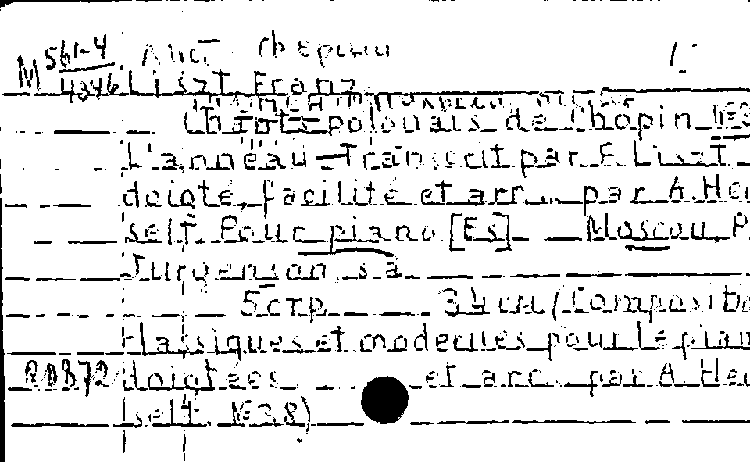 М 561-4 Лист Ференц
4346 Liszt, Franz
Chants polonais de Chopin №5
L'anneau - Transcrit par F. Liszt
doigté, facilité et arr. par A. Hen
selt. Pour piano [Es] Moscou, P.
Jurgenson, s.a.
5 стр. 34 см (Compositio
classiques et modernes pour le pian
doigtées et arr. par A. Hen
selt. № 38)